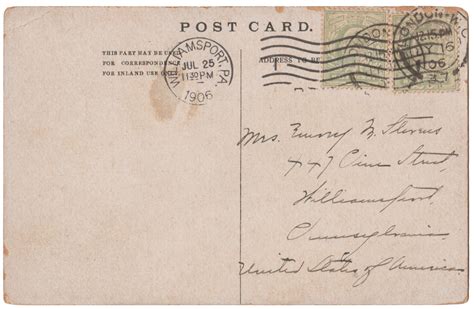 POST CARD.
THIS PART MAY BE USED
FOR CORRESPONDENCE
FOR INLAND USE ONLY
ADDRESS TO BE
WILLIAMSPORT, PA.
JUL 25
11 30 PM
1906
LONDON. W.C.
12.15 PM
JY 16
06
Mrs. Emory M. Stevens
447 Pine Street,
Williamsport,
Pennsylvania.
United States of America.